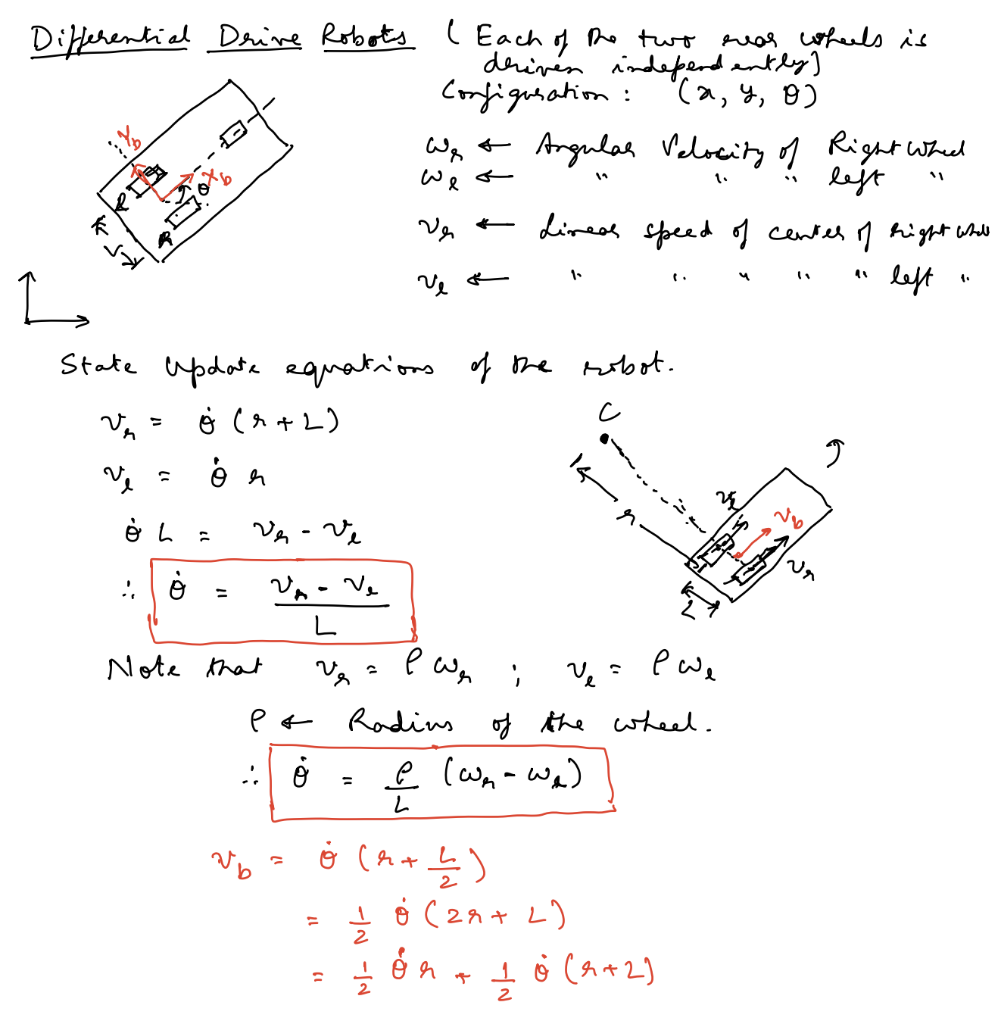 Differential Drive Robots ( Each of the two rear wheels is
driven independently)
Configuration : (x, y, θ)
Y_b
X_b
θ
l
R
L
ω_r ← Angular Velocity of Right Wheel
ω_l ← " " " left "
v_r ← Linear speed of center of right wheel
v_l ← " " " " " left "
State Update equations of the robot.
v_r = θ̇ (r + L)
v_l = θ̇ r
θ̇ L = v_r - v_l
∴ θ̇ = (v_r - v_l) / L
C
r
v_l
v_b
v_r
L
Note that v_r = ρ ω_r ; v_l = ρ ω_l
ρ ← Radius of the wheel.
∴ θ̇ = ρ/L (ω_r - ω_l)
v_b = θ̇ (r + L/2)
= 1/2 θ̇ (2r + L)
= 1/2 θ̇ r + 1/2 θ̇ (r+L)